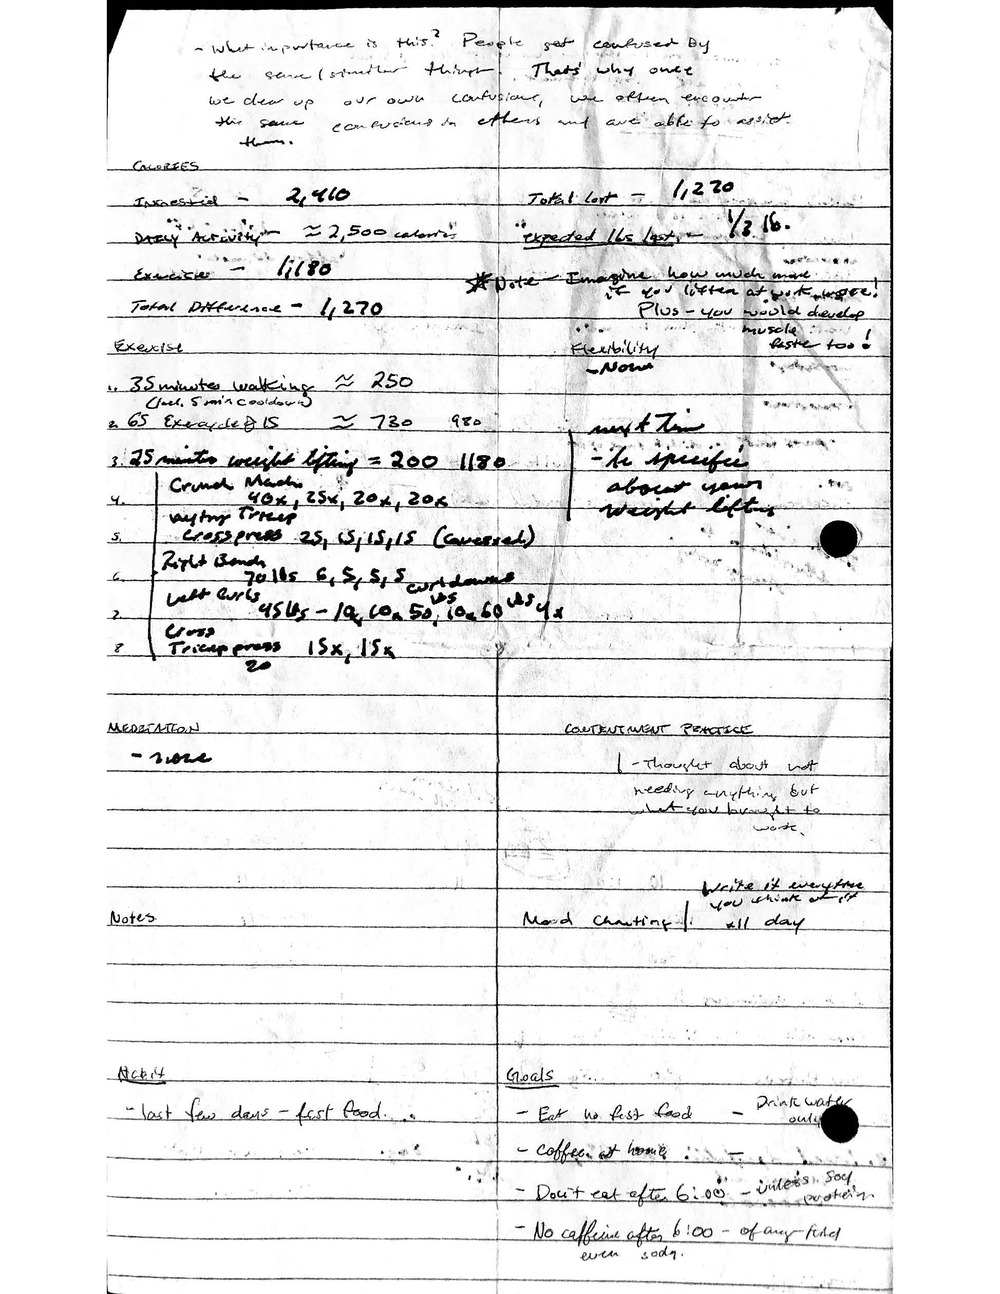 - What importance is this? People get confused by
the same/similar things. That's why once
we clear up our own confusions, we often encounter
the same confusions in others and are able to assist
them.
CALORIES
Ingested - 2,410
Total Lost - 1,270
Daily Activity - ≈ 2,500 calories
expected lbs lost - 1/3 lb.
Exercise - 1,180
* Note - Imagine how much more
if you lifted at work more!
Total Difference - 1,270
Plus - you would develop
muscle
faster too!
Exercise
Flexibility
- None
1. 35 minutes walking ≈ 250
(Incl. 5 min cooldown)
2. 65 Exercycle @ 15 ≈ 730 980
next Time
3. 25 minutes weight lifting = 200 1180
- be specific
about your
weight lifting
Crunch Machine
4. 40x, 25x, 20x, 20x
Tricep
5. Cross press 25, 15, 15, 15 (Converted)
Right Bench
6. 70 lbs 6, 5, 5, 5
curldowns
Left Curls
7. 45 lbs - 10, 10x 50 lbs, 10x 60 lbs 4x
Cross
8 Tricep press 15x, 15x
20
MEDITATION
CONTENTMENT PRACTICE
- none
| - Thought about not
needing anything but
what you brought to
work.
Write it everytime
you think of it
Notes
Mood Charting | all day
Habit
Goals
- last few days - fast food...
- Eat no fast food - Drink water
only
- coffee at home -
- Don't eat after 6:00 - unless soy
protein
- No caffeine after 6:00 - of any kind
even soda.